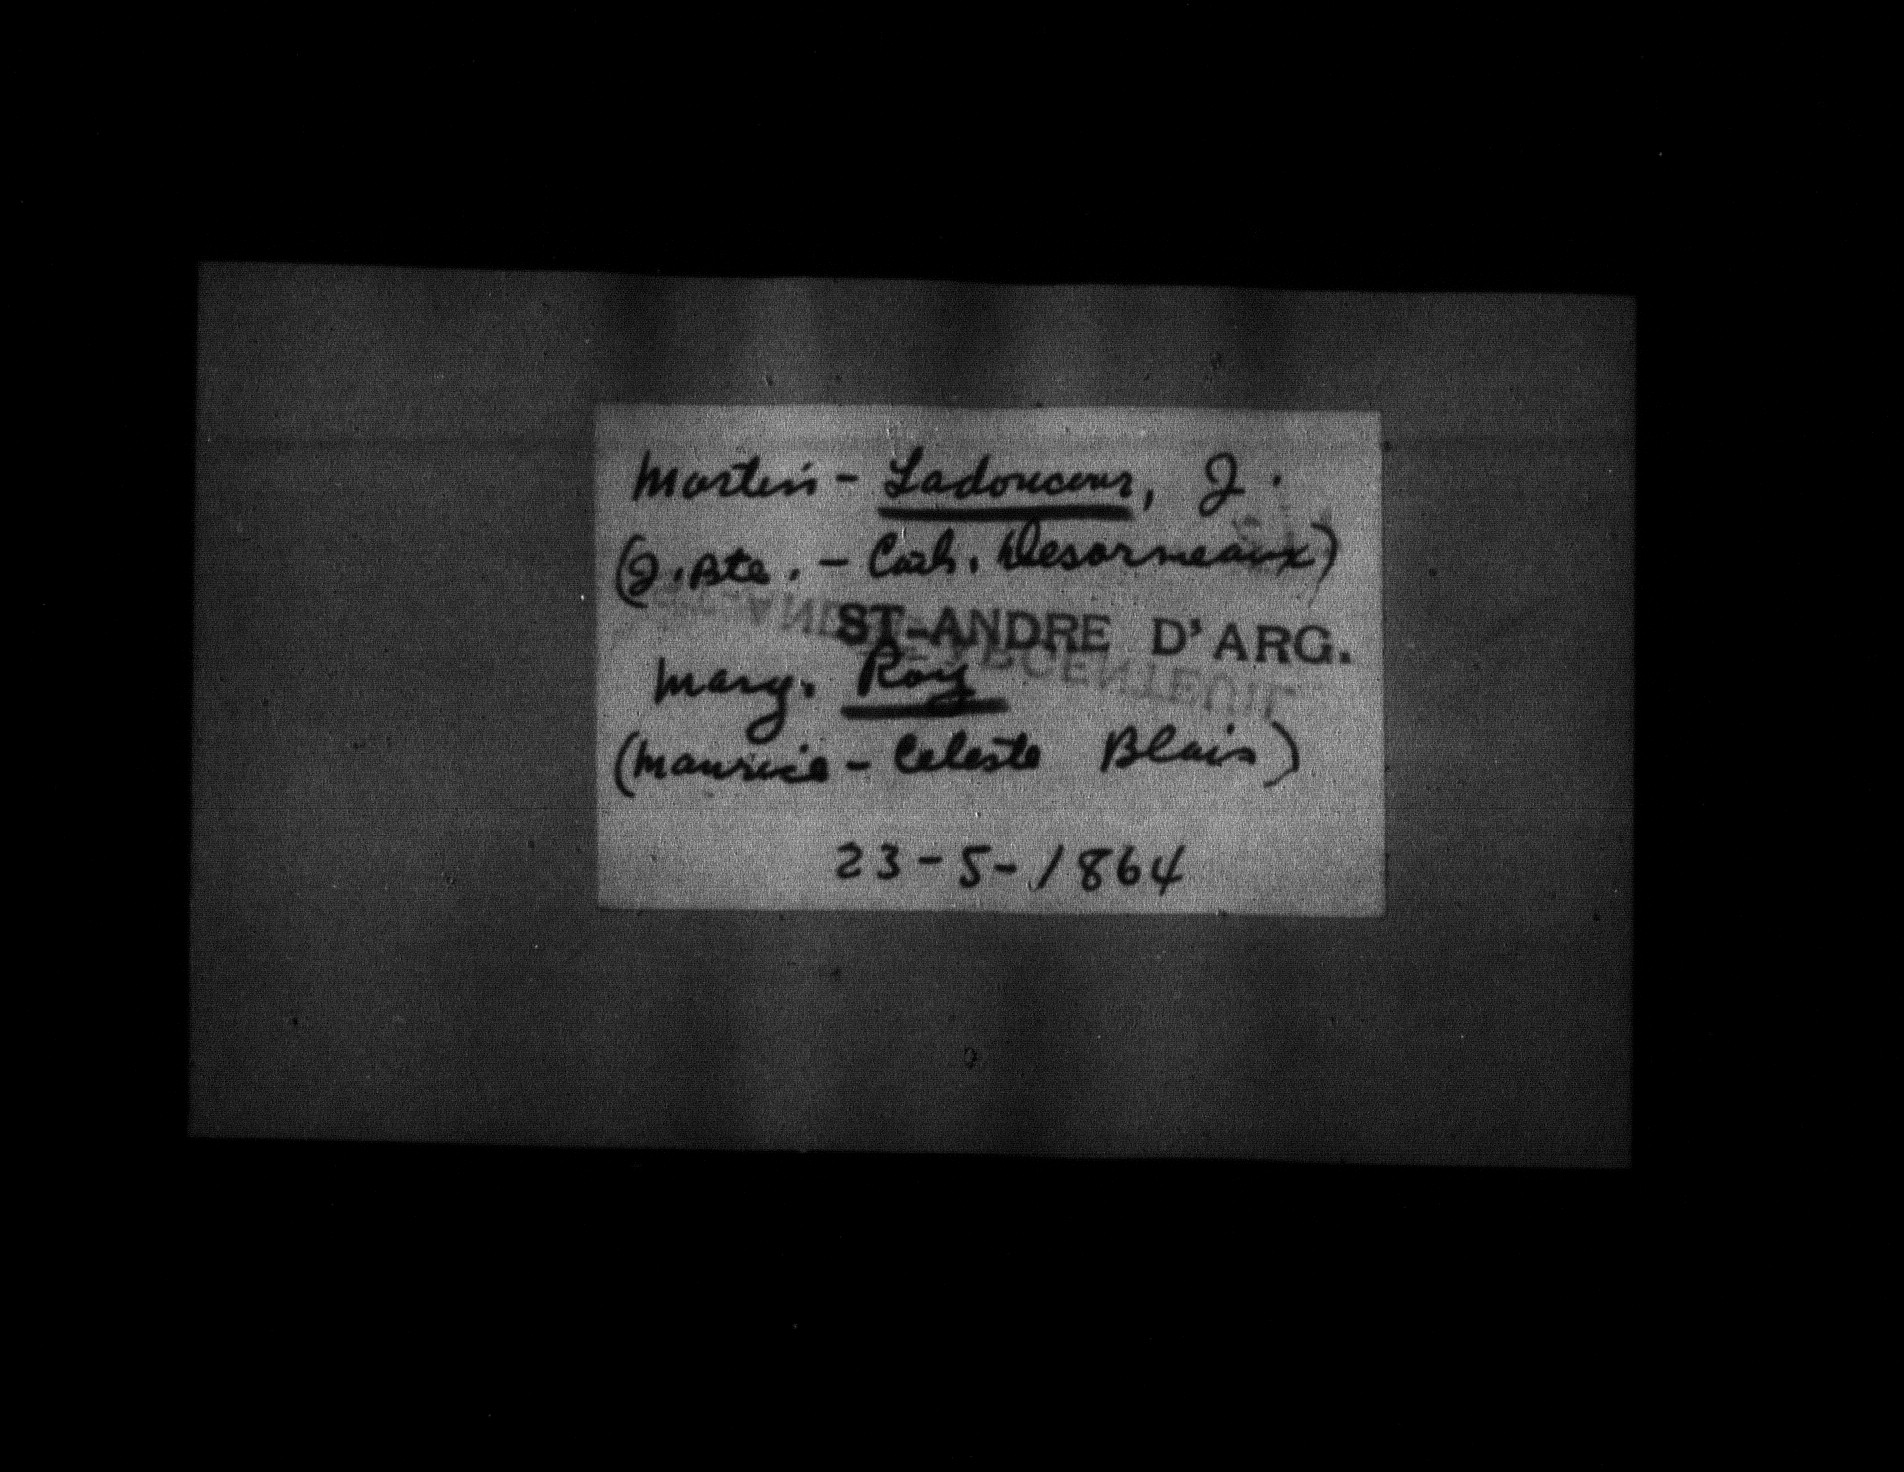 Martin - Ladouceur, J.
(J. Bte. - Cath. Desormeaux)
ST-ANDRE D'ARG.
Marg. Roy
(Maurice - Celeste Blais)
23-5-1864